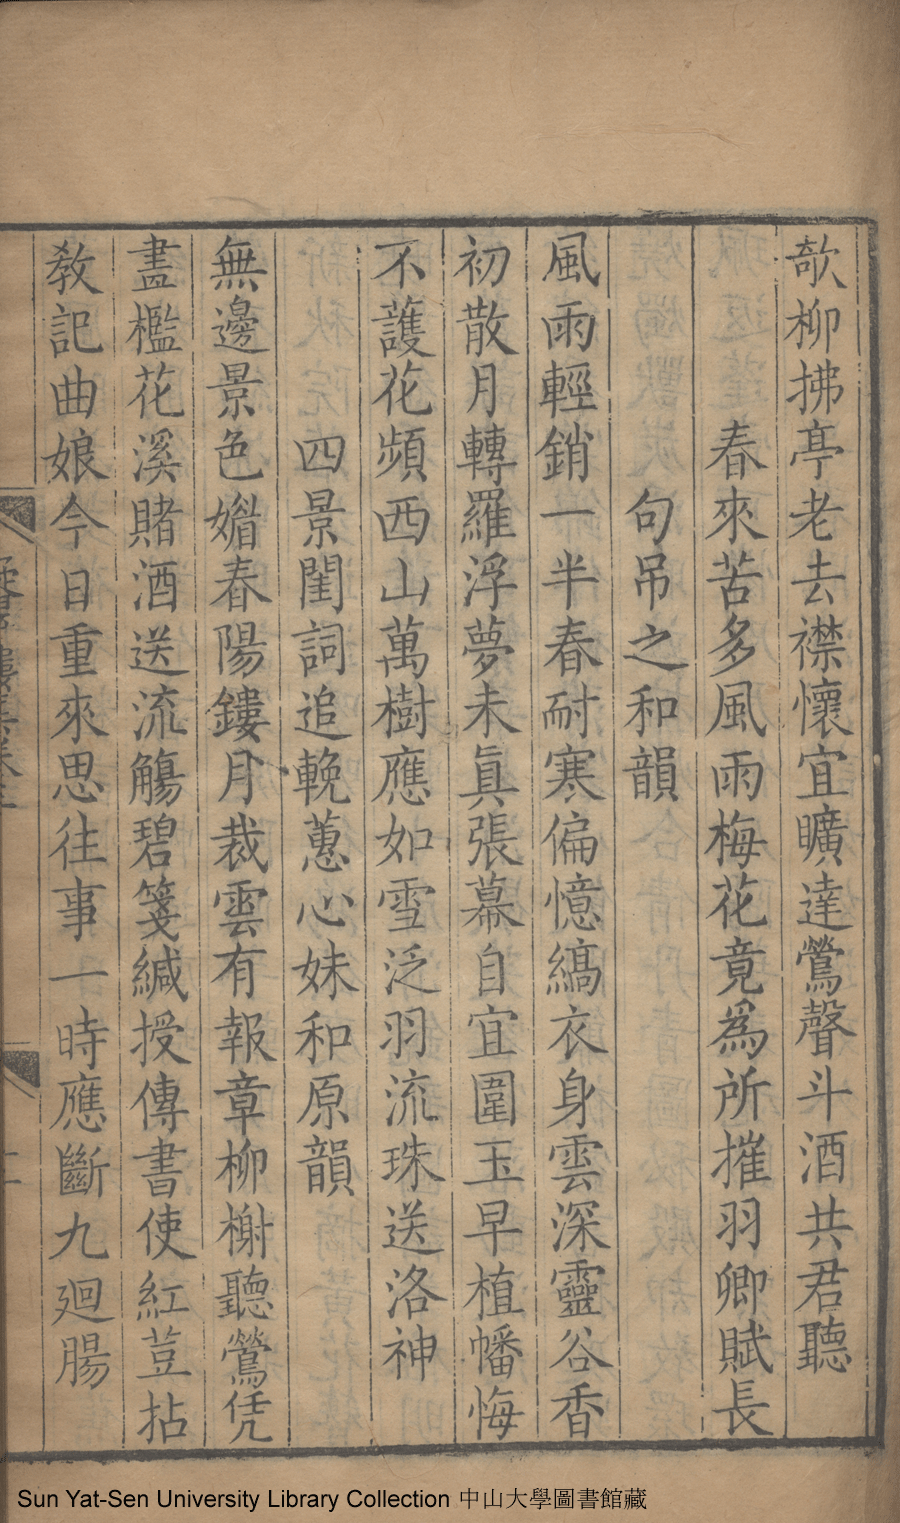 欹柳拂亭老去襟懷宜曠達鶯聲斗酒共君聽
春來苦多風雨梅花竟爲所摧羽卿賦長
句吊之和韻
風雨輕銷一半春耐寒偏憶縞衣身雲深靈谷香
初散月轉羅浮夢未眞張幕自宜圍玉早植幡悔
不護花頻西山萬樹應如雪泛羽流珠送洛神
四景閨詞追輓蕙心妹和原韻
無邊景色媚春陽鏤月裁雲有報章柳榭聽鶯凭
畫檻花溪賭酒送流觴碧箋緘授傳書使紅荳拈
敎記曲娘今日重來思往事一時應斷九廻腸
Sun Yat-Sen University Library Collection 中山大學圖書館藏